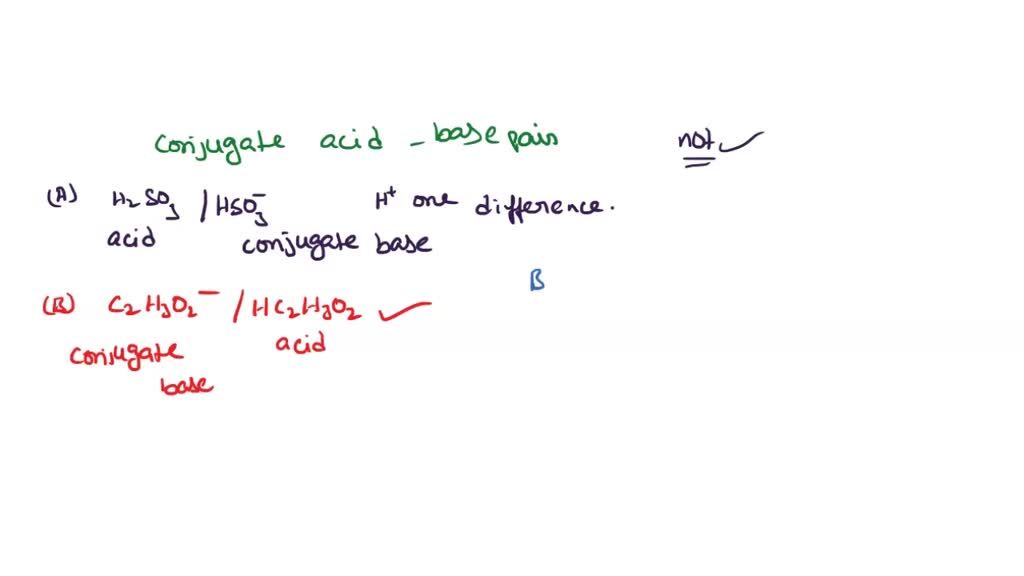 conjugate acid - base pairs not ✓
(A) H₂SO₃ / HSO₃⁻ H⁺ one difference.
acid conjugate base
B
(B) C₂H₃O₂⁻ / HC₂H₃O₂ ✓
conjugate acid
base